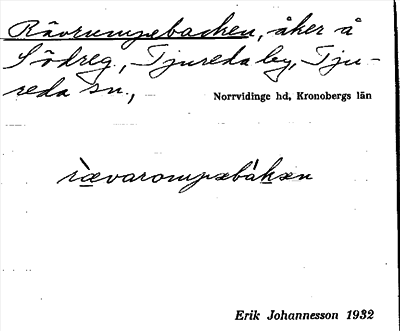 Rävrumpebacken, åker å
Södreg., Tjureda by, Tju-
reda sn.,
Norrvidinge hd, Kronobergs län
rævarompæbákæn
Erik Johannesson 1932